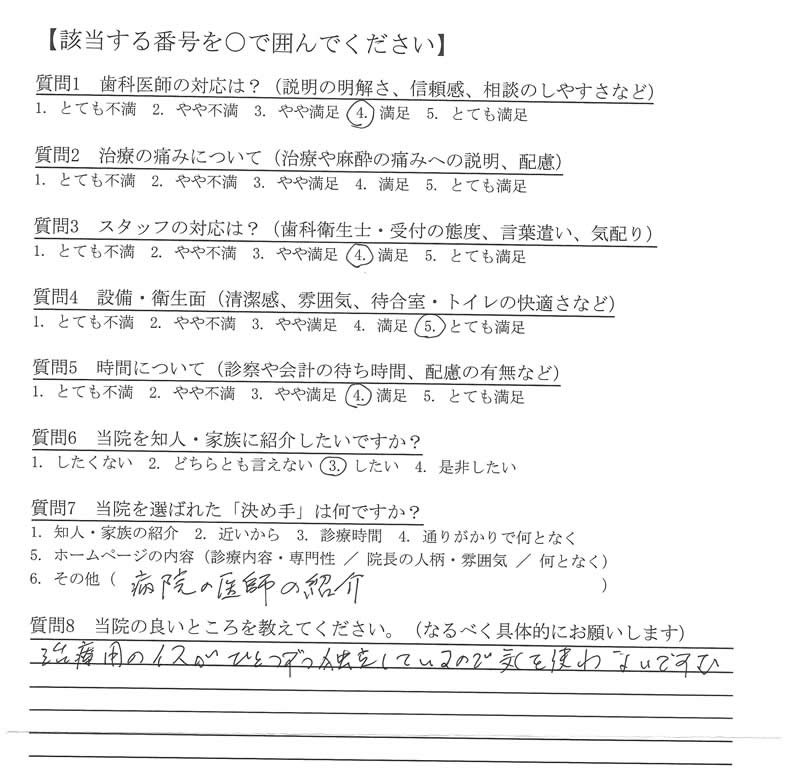 【該当する番号を○で囲んでください】
質問1 歯科医師の対応は？（説明の明解さ、信頼感、相談のしやすさなど）
1. とても不満 2. やや不満 3. やや満足 4. 満足 5. とても満足
質問2 治療の痛みについて（治療や麻酔の痛みへの説明、配慮）
1. とても不満 2. やや不満 3. やや満足 4. 満足 5. とても満足
質問3 スタッフの対応は？（歯科衛生士・受付の態度、言葉遣い、気配り）
1. とても不満 2. やや不満 3. やや満足 4. 満足 5. とても満足
質問4 設備・衛生面（清潔感、雰囲気、待合室・トイレの快適さなど）
1. とても不満 2. やや不満 3. やや満足 4. 満足 5. とても満足
質問5 時間について（診察や会計の待ち時間、配慮の有無など）
1. とても不満 2. やや不満 3. やや満足 4. 満足 5. とても満足
質問6 当院を知人・家族に紹介したいですか？
1. したくない 2. どちらとも言えない 3. したい 4. 是非したい
質問7 当院を選ばれた「決め手」は何ですか？
1. 知人・家族の紹介 2. 近いから 3. 診療時間 4. 通りがかりで何となく
5. ホームページの内容（診療内容・専門性 ／ 院長の人柄・雰囲気 ／ 何となく）
6. その他（ 病院の医師の紹介 ）
質問8 当院の良いところを教えてください。（なるべく具体的にお願いします）
治療用のイスがひとつずつ独立しているので気を使わないですむ